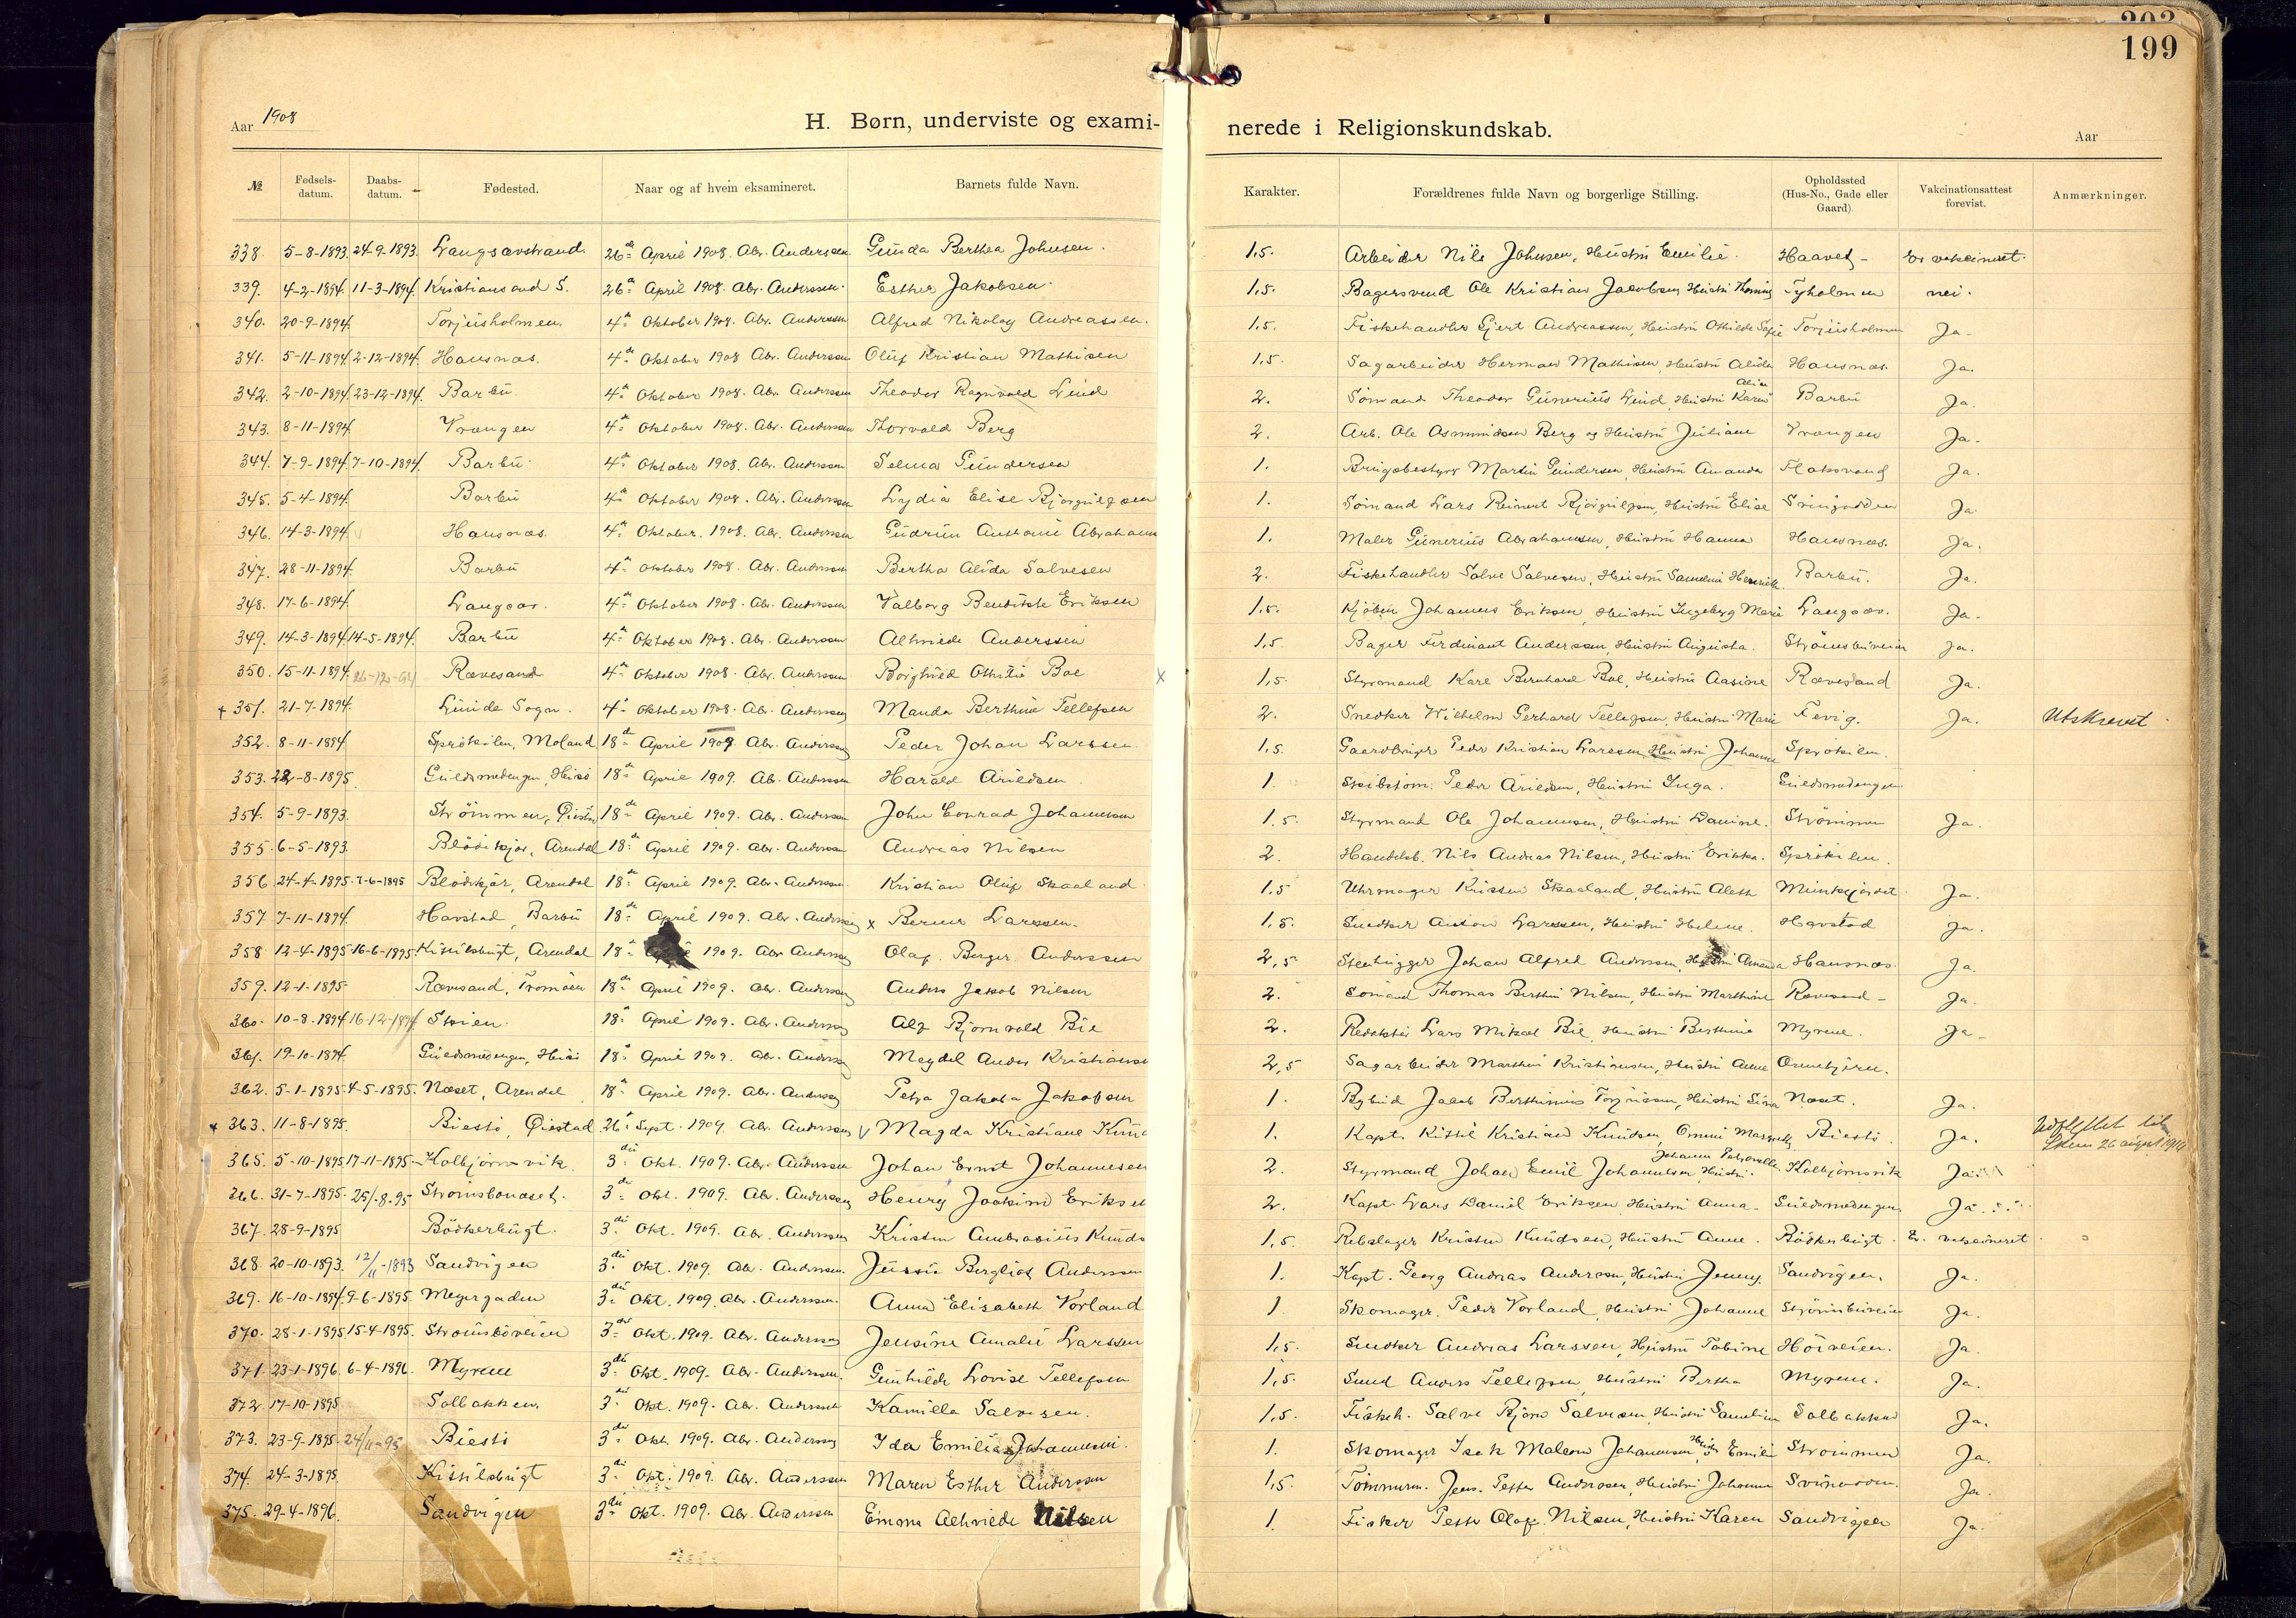 203
199
Aar 1908 H. Børn, underviste og exami- nerede i Religionskundskab. Aar
№ Fødsels-datum. Daabs-datum. Fødested. Naar og af hvem eksamineret. Barnets fulde Navn. Karakter. Forældrenes fulde Navn og borgerlige Stilling. Opholdssted (Hus-No., Gade eller Gaard). Vakcinationsattest forevist. Anmærkninger.
338. 5-8-1893. 24-9-1893. Langsævstrand. 26de April 1908. Abr. Anderssen Gunda Berthea Johnsen. 1,5. Arbeider Nils Johnsen, Hustru Emilie. Haavet Er vakcineret.
339. 4-2-1894. 11-3-1894. Kristiansand S. 26de April 1908. Abr. Anderssen. Esther Jakobsen. 1,5. Bagersvend Ole Kristian Jacobsen, Hustru Tyholmen nei.
340. 20-9-1894. Torjusholmen. 4de Oktober 1908. Abr. Anderssen Alfred Nikolay Andreassen. 1,5. Fiskehandler Gjert Andreassen, Hustru Othilde Sofie Torjusholmen Ja.
341. 5-11-1894. 2-12-1894. Hausnæs. 4de Oktober 1908 Abr. Anderssen Oluf Kristian Mathisen 1,5. Sagarbeider Herman Mathisen, Hustru Alida Hausnæs. Ja.
342. 2-10-1894. 23-12-1894. Barbu. 4de Oktober 1908. Abr. Anderssen Theodor Ragnvald Lind 2. Sömand Theodor Gunerius Lind, Hustru Karen Barbu Ja.
343. 8-11-1894 Vrængen 4de Oktober 1908. Abr. Anderssen Thorvald Berg 2. Arb. Ole Osmundsen Berg og Hustru Juliane Vrængen Ja.
344. 7-9-1894. 7-10-1894. Barbu. 4de Oktober 1908. Abr. Anderssen Selma Gundersen 1. Martin Gundersen, Hustru Amanda Flaksvand Ja.
345. 5-4-1894. Barbu 4de Oktober 1908. Abr. Anderssen Lydia Elise Bjorgulfsen 1. Sömand Lars Reinert Bjorgulfsen, Hustru Elise Ja.
346. 14-3-1894. Hausnæs. 4de Oktober. 1908. Abr. Anderssen Gudrun Antonie Abrahams 1. Maler Gunerius Abrahamsen, Hustru Hanna Hausnæs. Ja.
347. 28-11-1894. Barbu 4de Oktober 1908. Abr. Anderssen Bertha Alida Salvesen 2. Fiskehandler Salve Salvesen, Hustru Samuline Henriette Barbu. Ja.
348. 17-6-1894. Langsæv. 4de Oktober 1908. Abr. Anderssen Valborg Bendikte Eriksen 1,5. Kjöbm Johannes Eriksen, Hustru Ingeborg Marie Langsæv. Ja.
349. 14-3-1894. 14-5-1894. Barbu 4de Oktober 1908. Abr. Anderssen Alfriede Anderssen 1,5 Bager Ferdinant Anderssen, Hustru Augusta. Strömsbuveien Ja.
350. 15-11-1894. 26-12-94 Rævesand 4de Oktober 1908. Abr. Anderssen Borghild Othilie Boe X 1,5. Styrmand Karl Bernhard Boe, Hustru Aasine Rævesand Ja.
x 351. 21-7-1894. Lunde Sogn. 4de Oktober 1908. Abr. Anderssen Manda Berthine Tellefsen 2. Snedker Wilhelm Gerhard Tellefsen, Hustru Marie Fevig. Ja. Utskrevet.
352. 8-11-1894 Sprökilen, Moland 18de April 1909 Abr. Anderssen Peder Johan Larssen. 1,5. Gaardbruger Peder Kristian Larssen, Hustru Johanne Sprökilen.
353. 22-8-1895. Guldsmedengen, Hisö 18de April 1909. Abr. Anderssen Harald Arildsen. 1. Skibstöm. Peder Arildsen, Hustru Inga. Guldsmedengen
354. 5-9-1893. Strömmen, Öiestad 18de April 1909. Abr. Anderssen John Conrad Johannessen 1.5. Styrmand Ole Johannessen, Hustru Davine. Strömmen Ja.
355. 6-5-1893. Blödekjær, Arendal 18de April 1909. Abr. Anderssen Andreas Nilsen 2. Handelsb. Nils Andreas Nilsen, Hustru Erikka. Sprökilen.
356 24-4-1895. 7-6-1895 Blödekjær, Arendal 18de April 1909. Abr. Anderssen. Kristian Oluf Skaaland. 1,5 Uhrmager Kristen Skaaland, Hustru Aleth Munkejordet. Ja.
357 7-11-1894. Havstad, Barbu 18de April 1909. Abr. Anderssen x Berner Larssen. 1,5. Snedker Anton Larssen, Hustru Helene. Havstad Ja.
358 12-4-1895 16-6-1895. Kittilsbugt, Arendal 18de April 1909. Abr Anderssen Olaf Berger Anderssen 2,5 Stenhugger Johan Alfred Anderssen, Hustru Amanda Hausnæs. Ja.
359. 12-1-1895. Rævesand, Tromöen 18de April 1909. Abr. Anderssen Anders Jakob Nilsen 2. Sömand Thomas Berthin Nilsen, Hustru Marthine Rævesand Ja.
360. 10-8-1894 16-12-1894 Skien. 18de April 1909. Abr. Anderssen Alf Bjornvald Bie 2. Redaktör Lars Mikael Bie, Hustru Berthine Myrene. Ja.
361. 19-10-1894. Guldsmedengen, Hisö 18de April 1909. Abr. Anderssen Meydel Ander Kristiansen 2,5 Sagarbeider Marthin Kristiansen, Hustru Anne
362. 5-1-1895. 4-5-1895. Næset, Arendal 18de April 1909. Abr. Anderssen Petra Jakoba Jakobsen 1. Bybud Jacob Berthinius Torjussen, Hustru Sina Næset. Ja.
x 363. 11-8-1895. Biestö, Öiestad 26de Sept. 1909. Abr. Anderssen V Magda Kristiane Knud 1. Kapt. Kittil Kristian Knudsen, Biestö. Ja. Udflyttet til Skien 26 august 1914
365. 5-10-1895 17-11-1895. Kolbjörnsvik. 3die Okt. 1909. Abr. Anderssen Johan Ernst Johannesen 2. Styrmand Johan Emil Johannesen, Hustru Johanne Petronelle. Kolbjörnsvik Ja.
266. 31-7-1895. 25/8-95 Strömsbunæset. 3die Okt. 1909. Abr. Anderssen Henry Joakim Eriksen 2. Kapt. Lars Daniel Eriksen, Hustru Anna. Guldsmedengen Ja.
367. 28-9-1895 Bödkerbugt. 3die Okt. 1909. Abr. Anderssen Kristen Ambrosius Knuds 1,5. Rebslager Kristen Knudsen, Hustru Anne. Bödkerbugt. Er vakcineret.
368 20-10-1893. 12/11-1893 Sandvigen 3die Okt. 1909. Abr. Anderssen. Jussie Bergliot Anderssen 1. Kapt. Georg Andreas Anderssen, Hustru Jenny. Sandvigen. Ja.
369. 16-10-1894. 9-6-1895. Meyergaden 3die Okt. 1909. Abr. Anderssen. Anna Elisabeth Vorland 1 Skomager Peder Vorland, Hustru Johanne Strömsbuveien Ja.
370. 28-1-1895 15-4-1895. Strömsbuveien 3die Okt. 1909. Abr. Anderssen Jensine Amalie Larssen 1,5. Snedker Andreas Larssen, Hustru Tobine Höiveien. Ja.
371. 23-1-1896. 6-4-1896. Myrene 3die Okt. 1909. Abr. Anderssen. Gunhilde Lovise Tellefsen 1,5. Smed Anders Tellefsen, Hustru Bertha Myrene. Ja.
372. 17-10-1895 Solbakken. 3die Okt. 1909. Abr. Anderssen Kamilla Salvesen. 1,5. Fiskeh. Salve Bjorn Salvesen, Hustru Samuline Solbakken Ja.
373. 23-9-1895. 24/11-95 Biestö 3die Okt. 1909. Abr. Anderssen Ida Emilie Johannesen. 1. Skomager Isak Malem Johannesen, Hustru Emilie Strömmen Ja.
374. 24-3-1895 Kittilsbugt 3die Okt. 1909. Abr. Anderssen Maren Esther Anderssen 1,5. Tömmerm. Jens Petter Anderssen, Hustru Johanne Ja.
375. 29-4-1896. Sandvigen 3die Okt. 1909. Abr. Anderssen Emma Alfriede Nilsen 1. Fisker Petter Olaf Nilsen, Hustru Karen Sandvigen Ja.